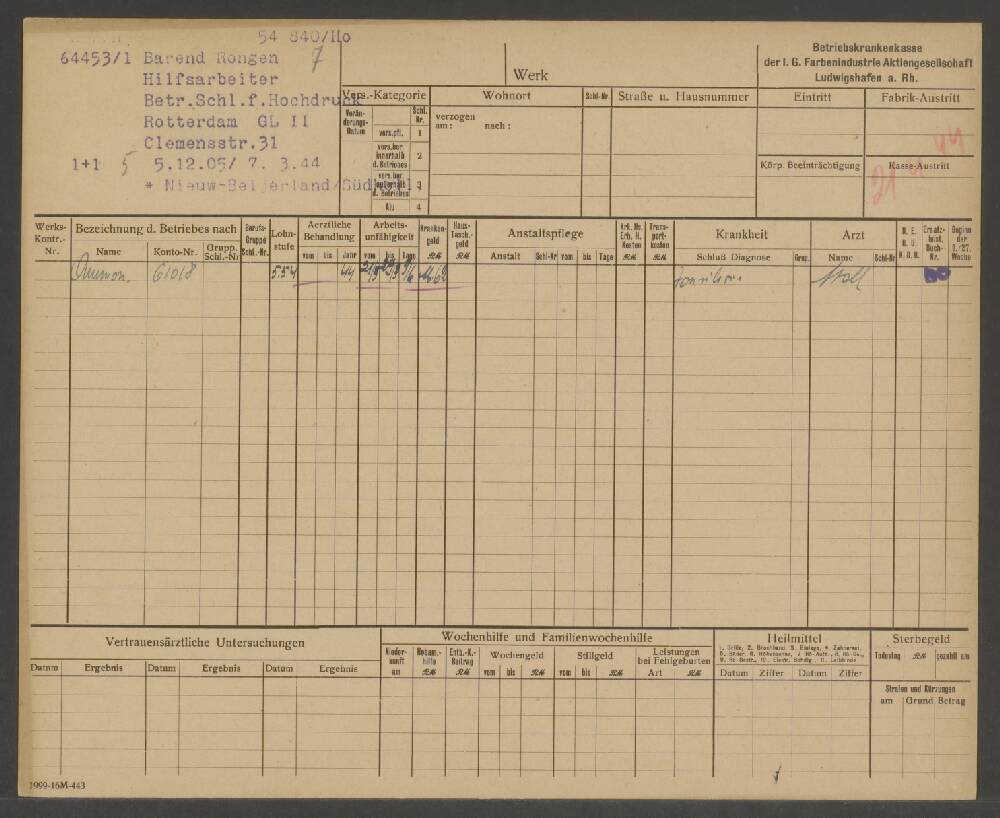 54 840/Ho
64453/1 Barend Rongen 7
Hilfsarbeiter
Betr.Schl.f.Hochdruck
Rotterdam GL II
Clemensstr.31
1+1 5 5.12.05/ 7. 3.44
* Nieuw-Beijerland/Südholl.
Werk
Betriebskrankenkasse
der I. G. Farbenindustrie Aktiengesellschaft
Ludwigshafen a. Rh.
Vers.-Kategorie Wohnort Schl-Nr Straße u. Hausnummer Eintritt Fabrik-Austritt
Verän-
derungs-
Datum
Schl.
Nr.
vers.pfl. 1
vers.ber.
innerhalb
d. Betriebes 2
vers.ber.
außerhalb
d. Betriebes 3
4
verzogen
am: nach:
Körp. Beeinträchtigung Kasse-Austritt
44
21 4
Werks-
Kontr.-
Nr.
Bezeichnung d. Betriebes nach
Name Konto-Nr. Grupp. Schl.-Nr
Berufs-
Gruppe
Schl.-Nr.
Lohn-
stufe
Aerztliche
Behandlung
vom bis Jahr
Arbeits-
unfähigkeit
vom bis Tage
Kranken-
geld
RM
Haus-
Tasch.-
geld
RM
Anstaltspflege
Anstalt Schl-Nr vom bis Tage
Kosten
RM
Trans-
port-
kosten
RM
Krankheit
Schluß Diagnose Grup.
Arzt
Name Schl-Nr
Ersatz-
Buch-
Nr.
Beginn
der
Woche
61018 554 44
Vertrauensärztliche Untersuchungen
Datum Ergebnis Datum Ergebnis Datum Ergebnis
Wochenhilfe und Familienwochenhilfe
Nieder-
kunft
am
Hebam.-
hilfe
RM
Entb.-K.-
Beitrag
RM
Wochengeld
vom bis RM
Stillgeld
vom bis RM
Leistungen
bei Fehlgeburten
Art RM
Heilmittel
Datum Ziffer Datum Ziffer
Sterbegeld
Todestag RM gezahlt am
Strafen und Kürzungen
am Grund Betrag
1999-16M-443